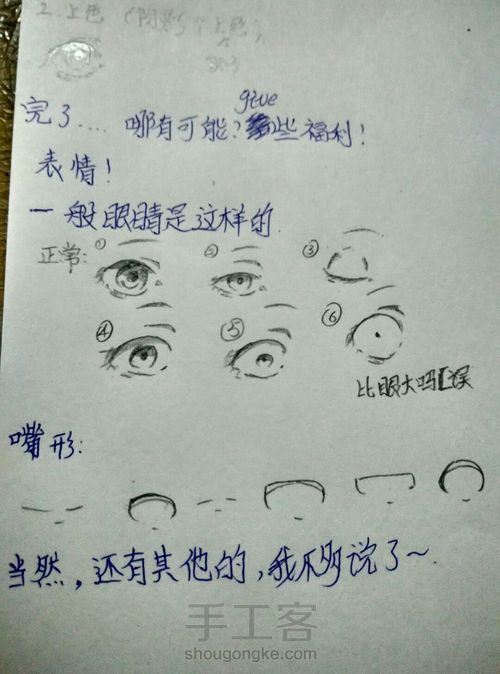 2. 上色
完了.... 哪有可能? give些福利!
表情!
一般眼睛是这样的
正常: ① ② ③
④ ⑤ ⑥
比眼大吗
嘴形:
当然, 还有其他的, 我不多说了~
手工客
shougongke.com